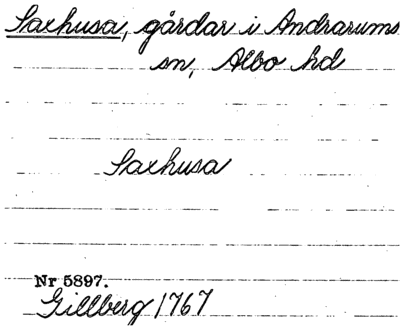 Saxhusa, gårdar i Andrarums
sn, Albo hd
Saxhusa
Nr 5897.
Gillberg 1767